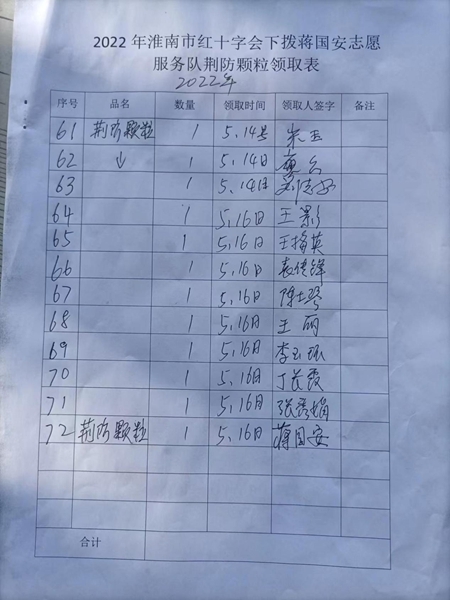 2022年淮南市红十字会下拨蒋国安志愿
服务队荆防颗粒领取表
2022年
序号 品名 数量 领取时间 领取人签字 备注
61 荆防颗粒 1 5.14号 朱玉
62 ↓ 1 5.14日
63 1 5.14日
64 1 5.16日 王影
65 1 5.16日 王梅英
66 1 5.16日
67 1 5.16日 陈士琴
68 1 5.16日 王丽
69 1 5.16日 李玉珠
70 1 5.16日 丁长霞
71 1 5.16日 张秀娟
72 荆防颗粒 1 5.16日 蒋国安
合计